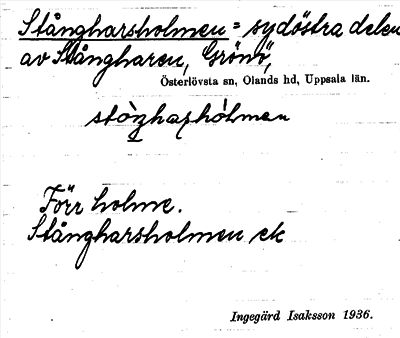 Stångharsholmen = sydöstra delen
av Stångharen, Gräsö,
Österlövsta sn, Olands hd, Uppsala län.
Förr holme.
Stångharsholmen ek
Ingegärd Isaksson 1936.